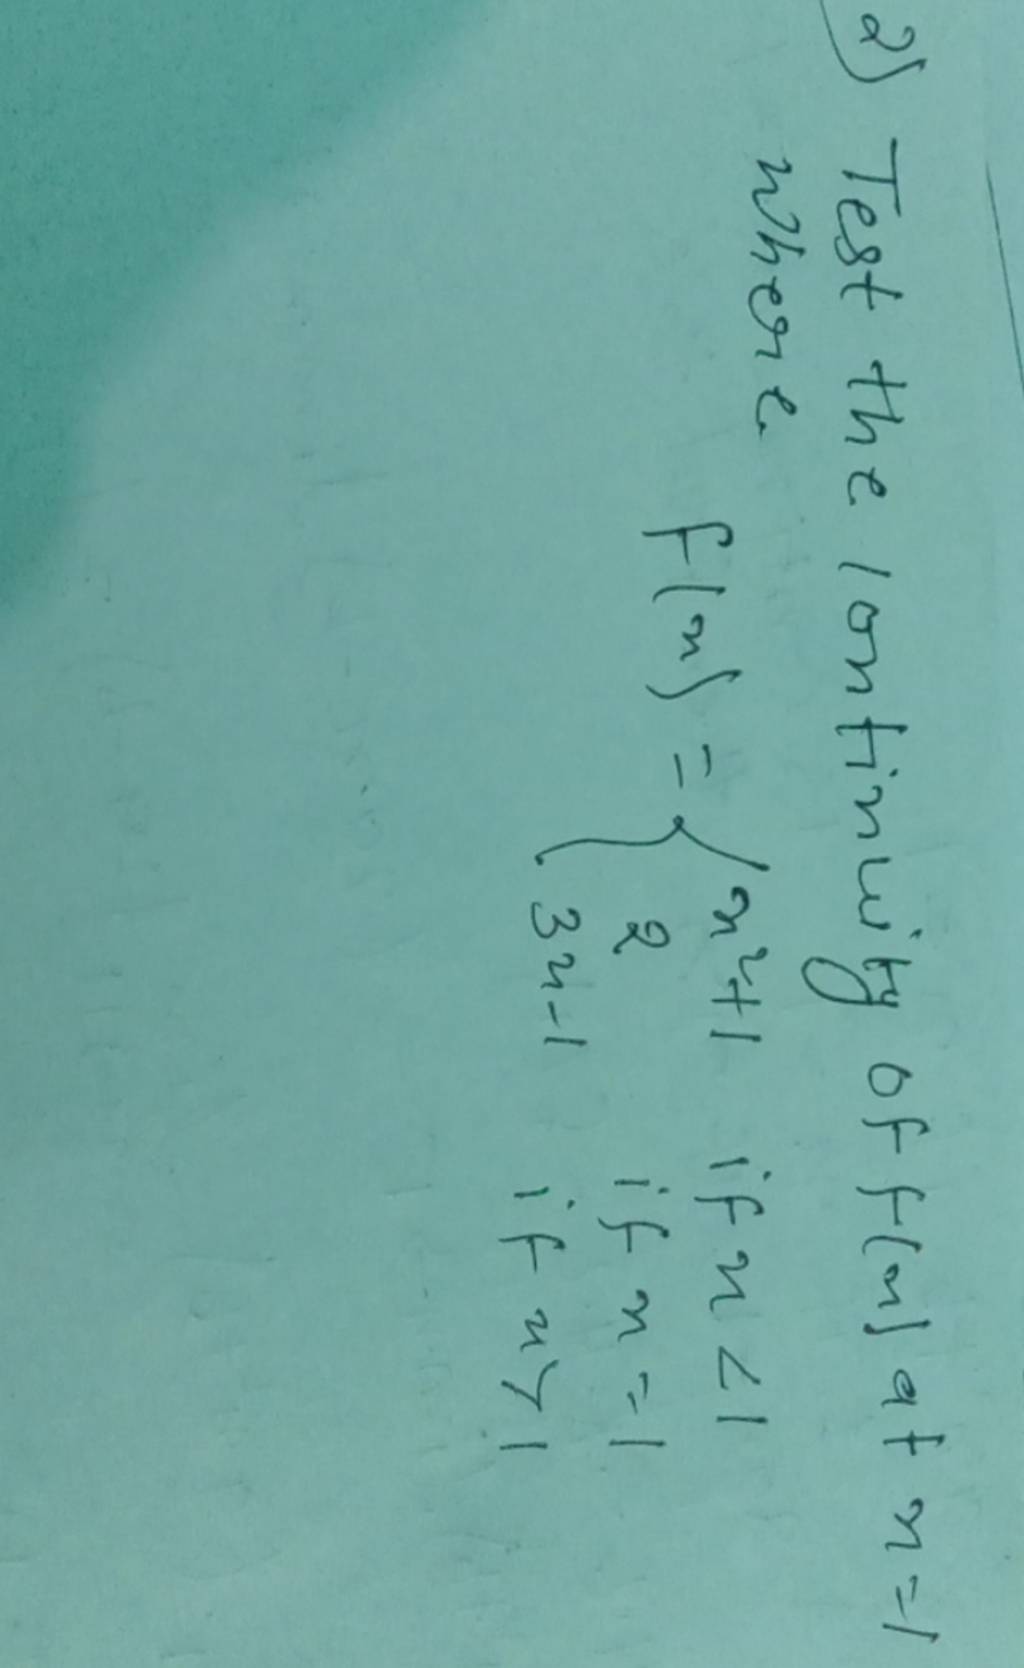 2) Test the continuity of f(x) at x=1
where
f(x) = { x²+1 if x<1
2 if x=1
3x-1 if x>1